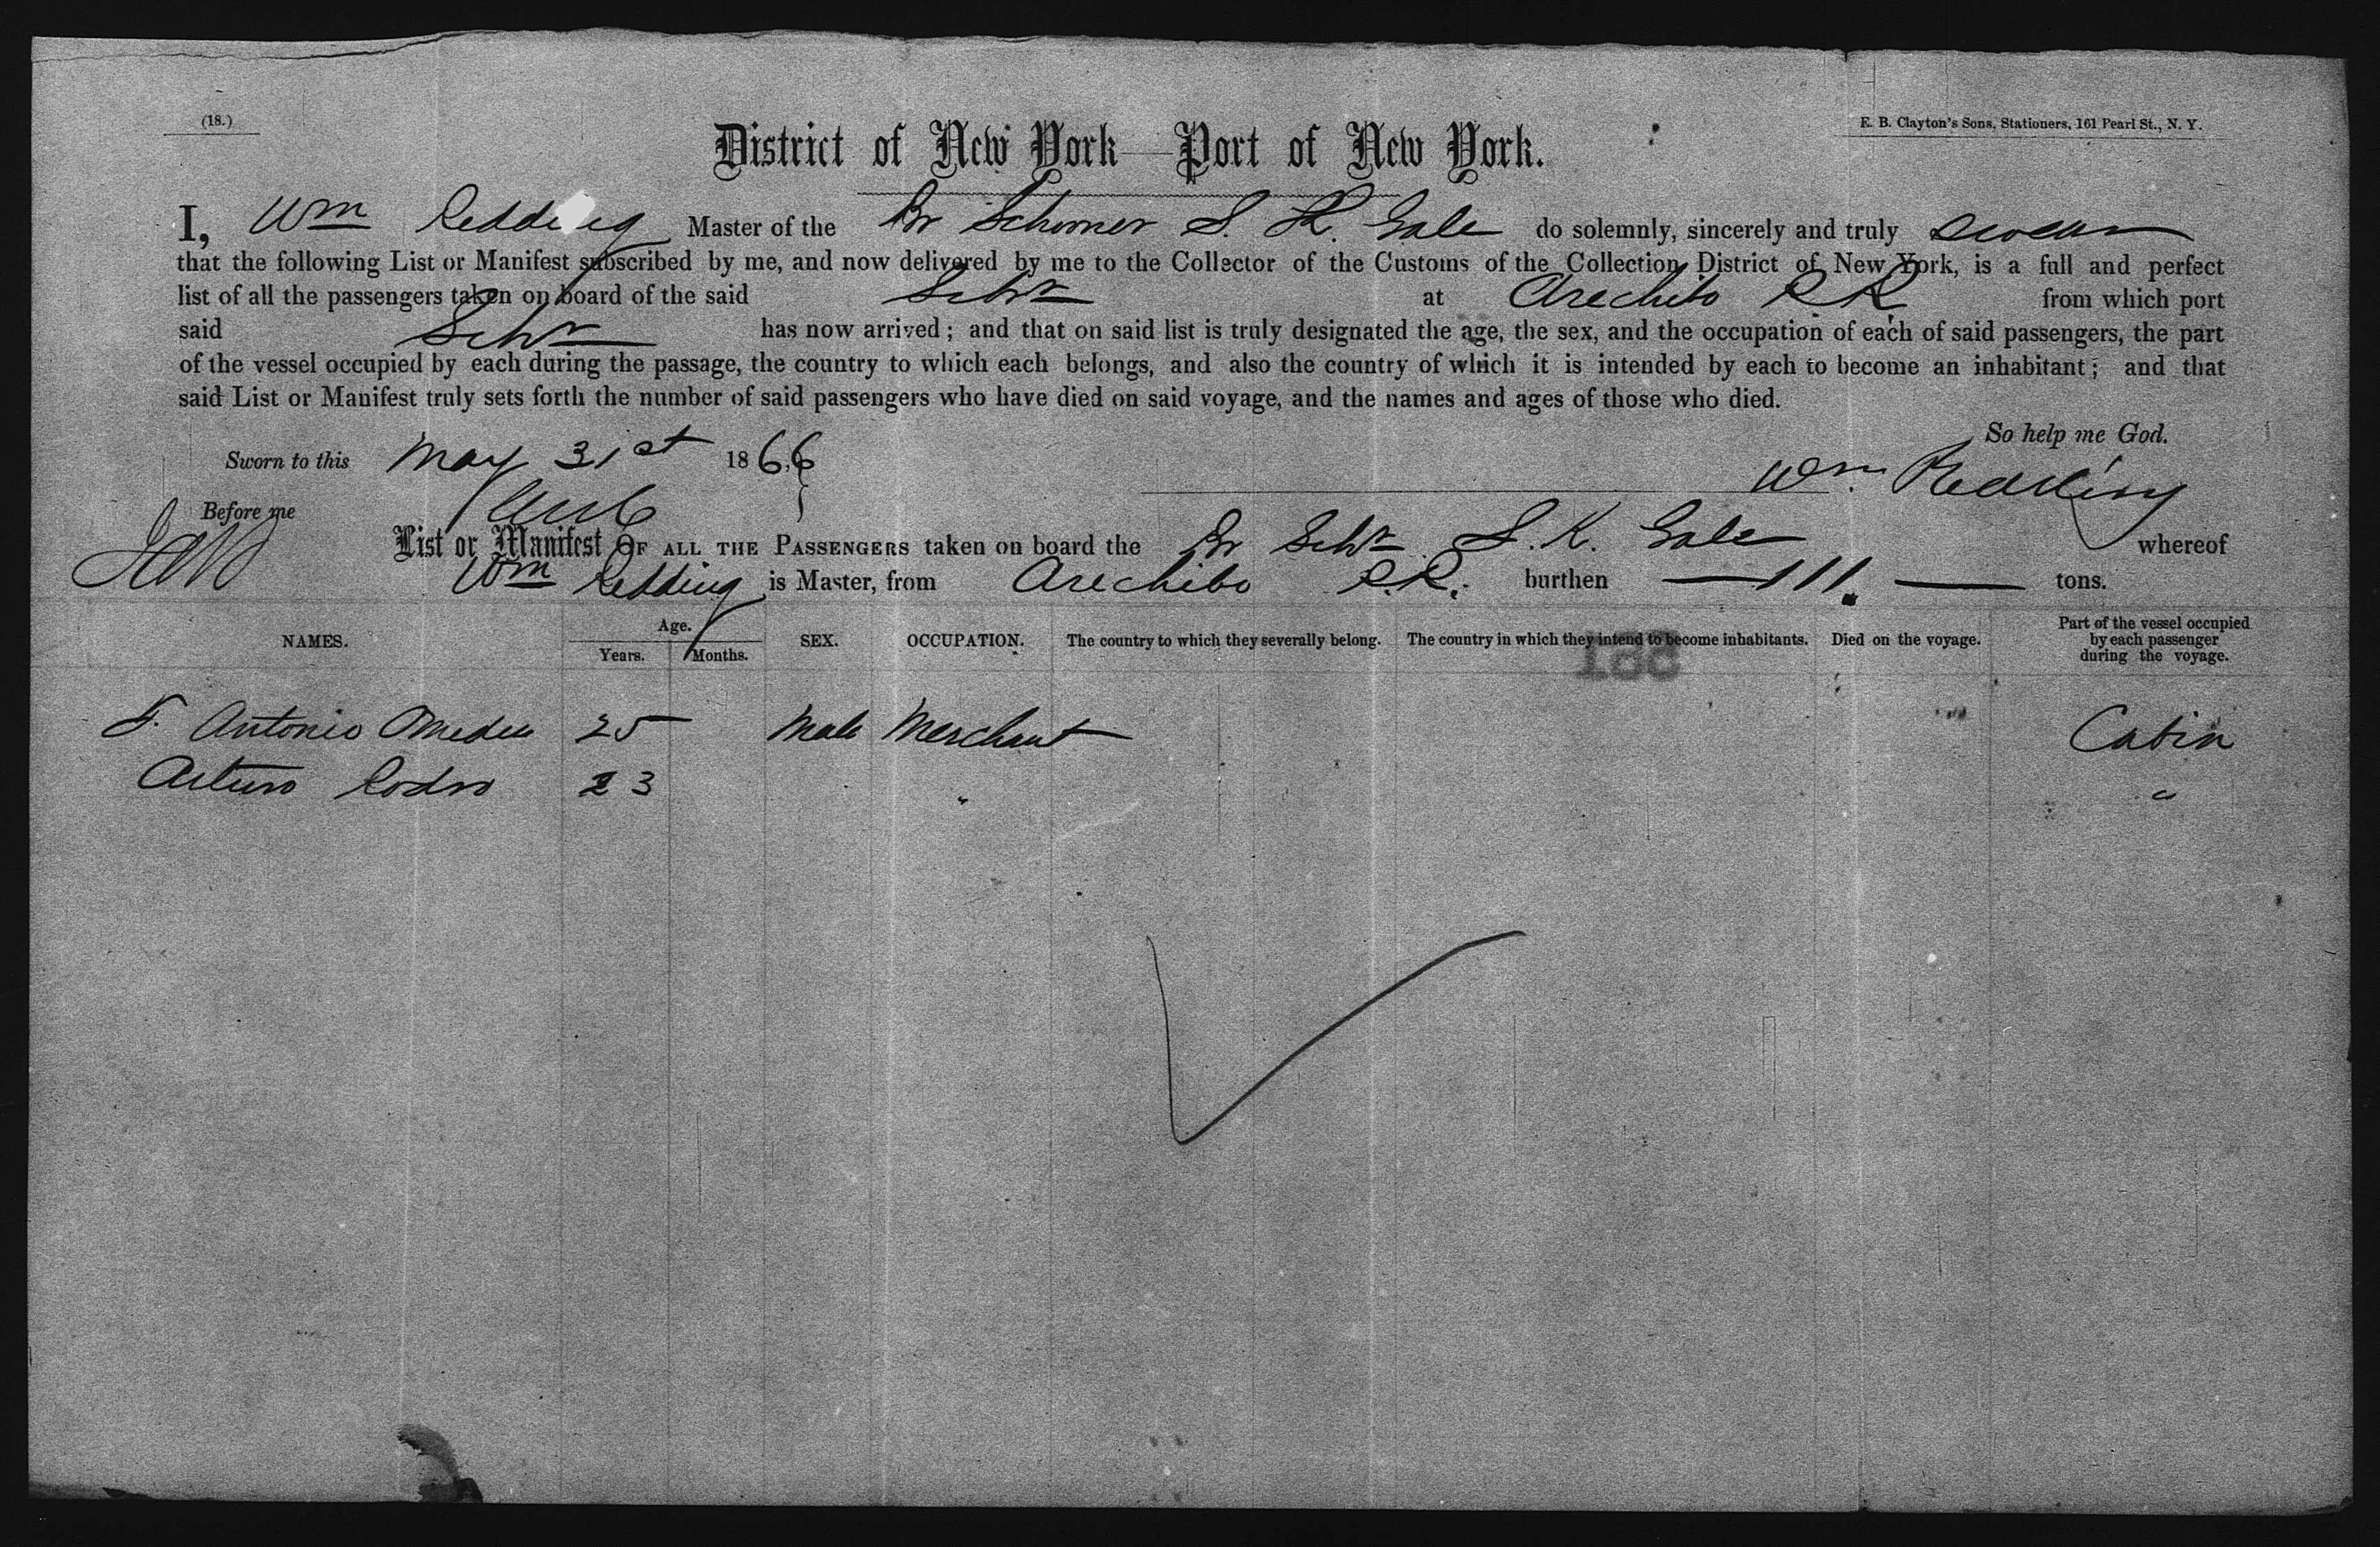 (18.)
E. B. Clayton's Sons, Stationers, 161 Pearl St., N. Y.
District of New York—Port of New York.
I, Wm Redding Master of the Br Schooner S. K. Gale do solemnly, sincerely and truly swear
that the following List or Manifest subscribed by me, and now delivered by me to the Collector of the Customs of the Collection District of New York, is a full and perfect
list of all the passengers taken on board of the said Schr at Arechibo P.R. from which port
said Schr has now arrived; and that on said list is truly designated the age, the sex, and the occupation of each of said passengers, the part
of the vessel occupied by each during the passage, the country to which each belongs, and also the country of which it is intended by each to become an inhabitant; and that
said List or Manifest truly sets forth the number of said passengers who have died on said voyage, and the names and ages of those who died.
So help me God.
Sworn to this May 31st 1866
Wm. Redding
Before me
List or Manifest OF ALL THE PASSENGERS taken on board the Br Schr S. K. Gale whereof
Wm Redding is Master, from Arechibo P.R. burthen 111. tons.
NAMES. Age. Years. Months. SEX. OCCUPATION. The country to which they severally belong. The country in which they intend to become inhabitants. Died on the voyage. Part of the vessel occupied by each passenger during the voyage.
Antonio 25 Male Merchant Cabin
Arturo 23 " "